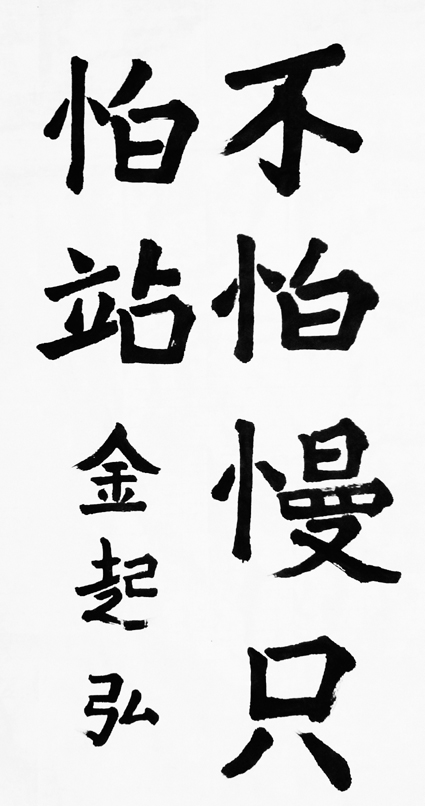 不怕慢只
怕站
金起弘